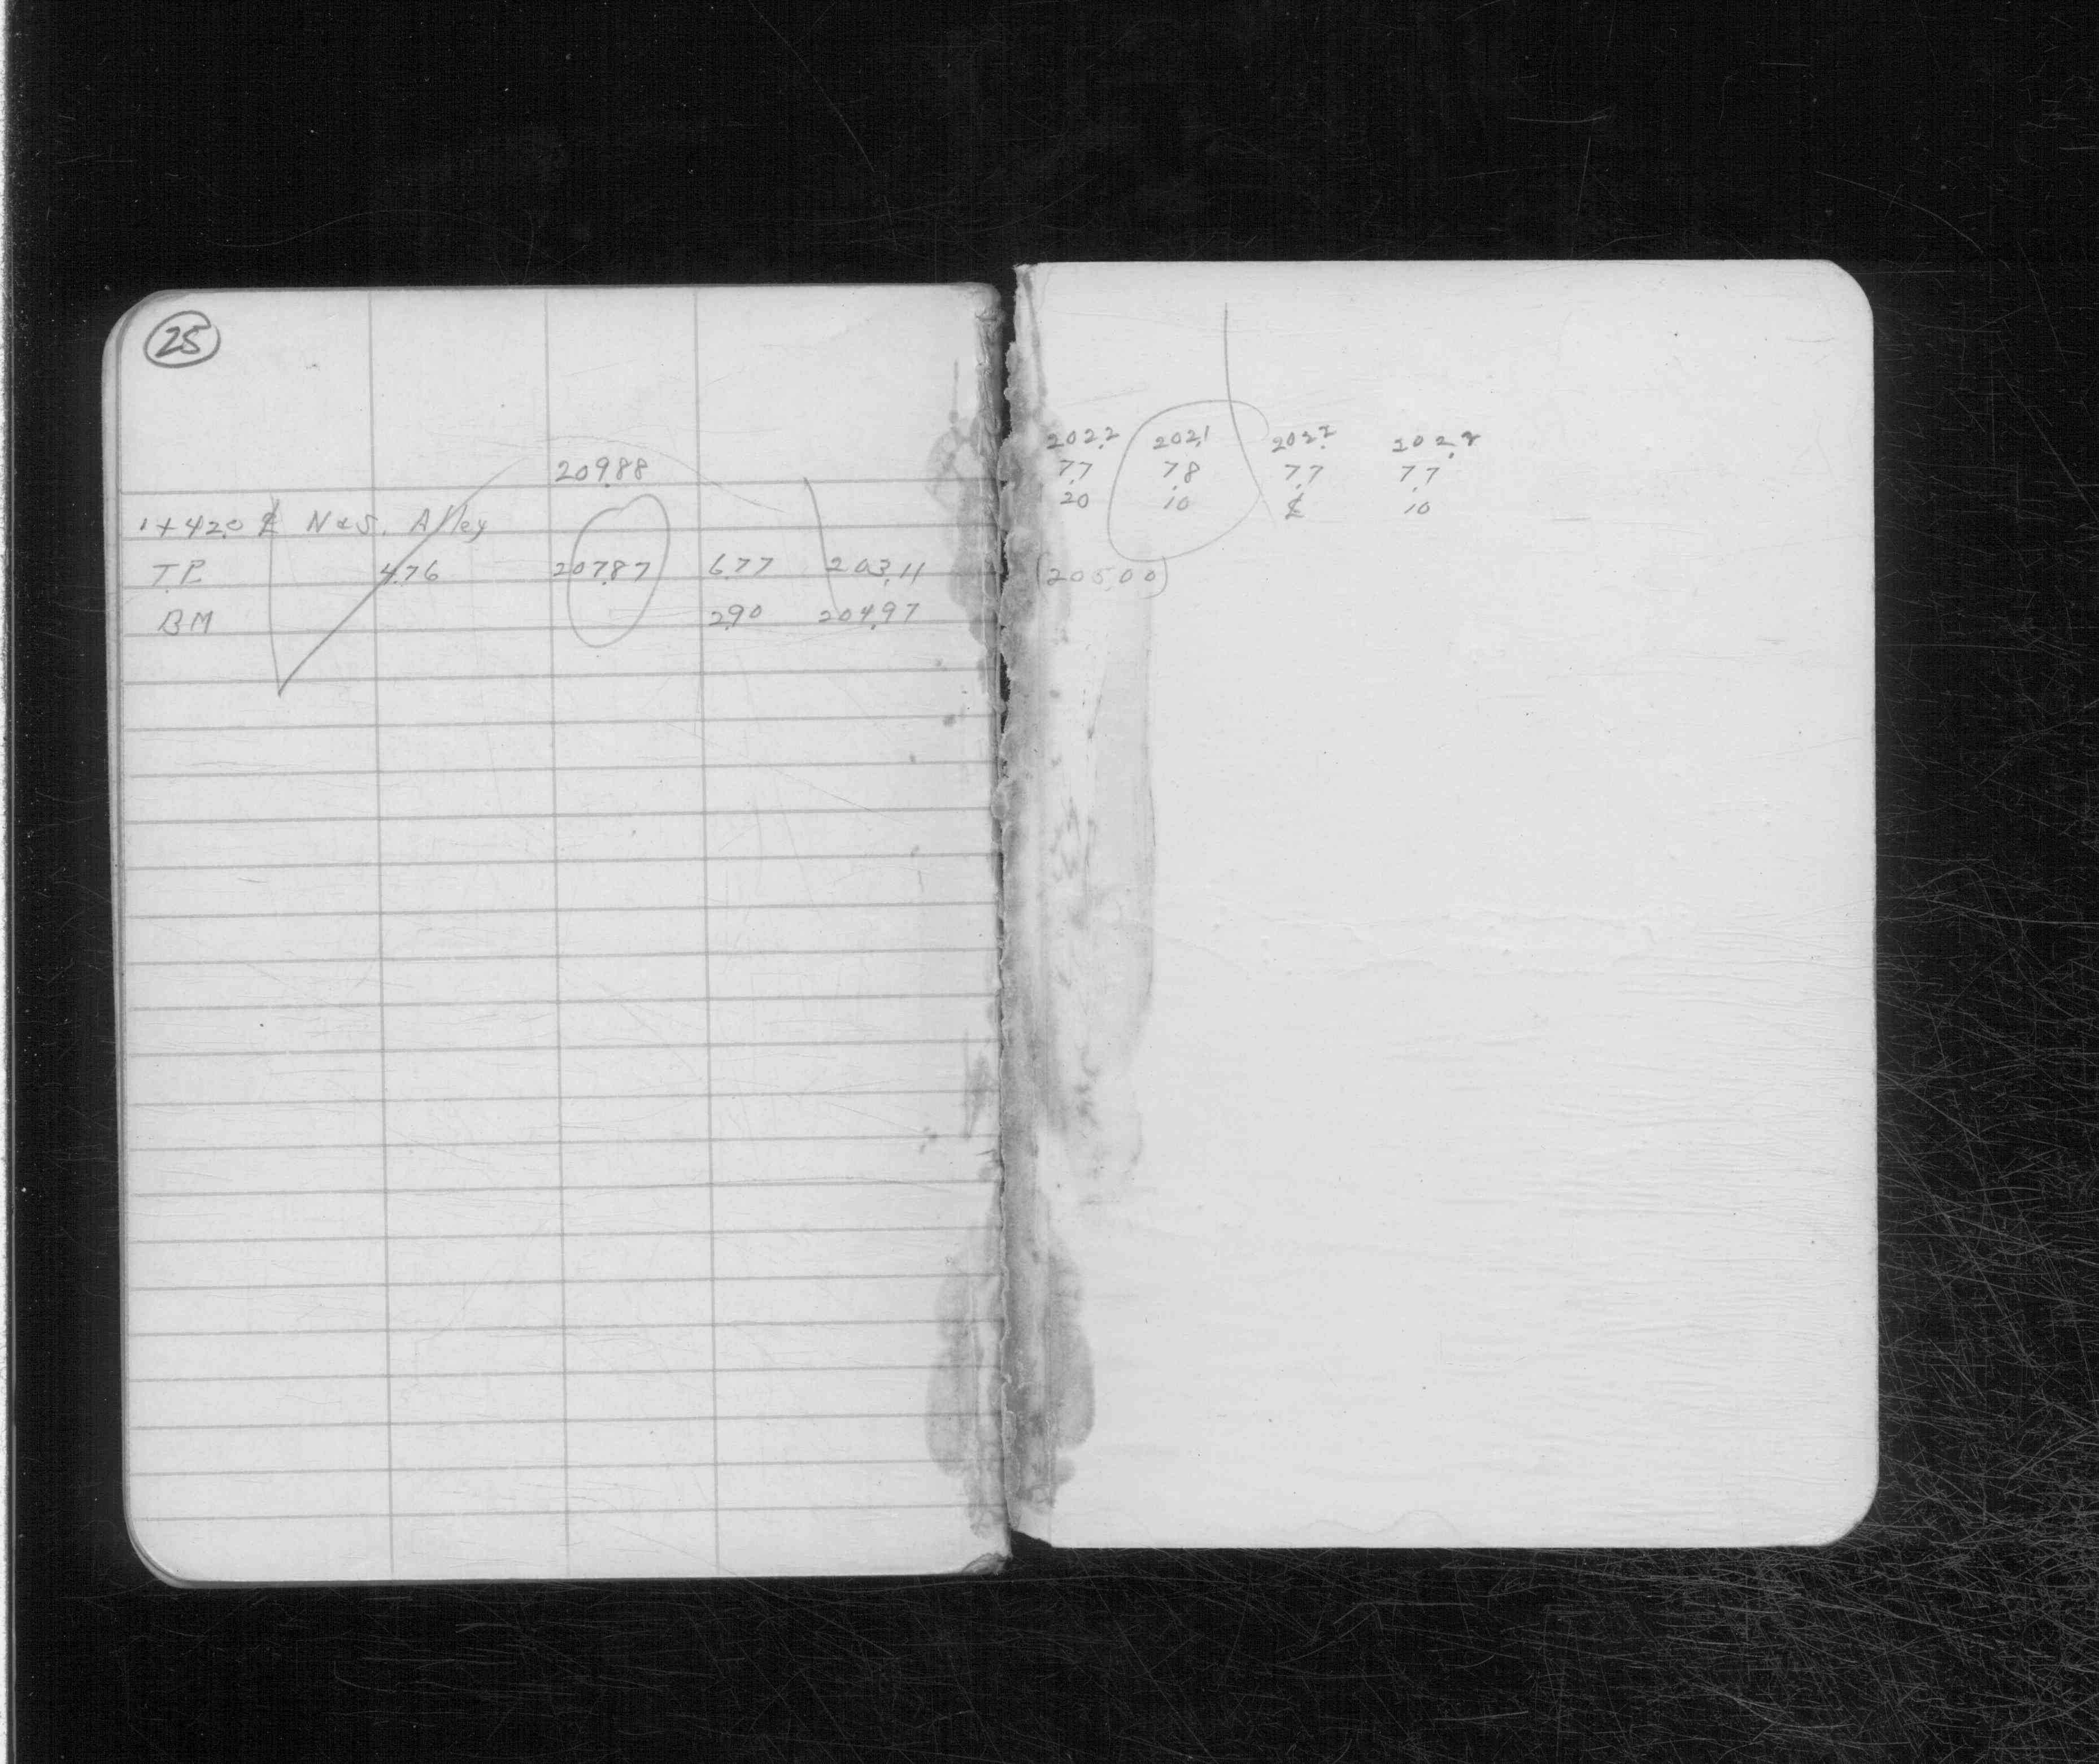 25
209.88
1+42.0 ℄ N & S. Alley
T.P. 4.76 207.87 6.77 203.11
BM 2.90 204.97
202.2 202.1 202.2
7.7 7.8 7.7 7.7
20 10 ℄ 10
(205.00)